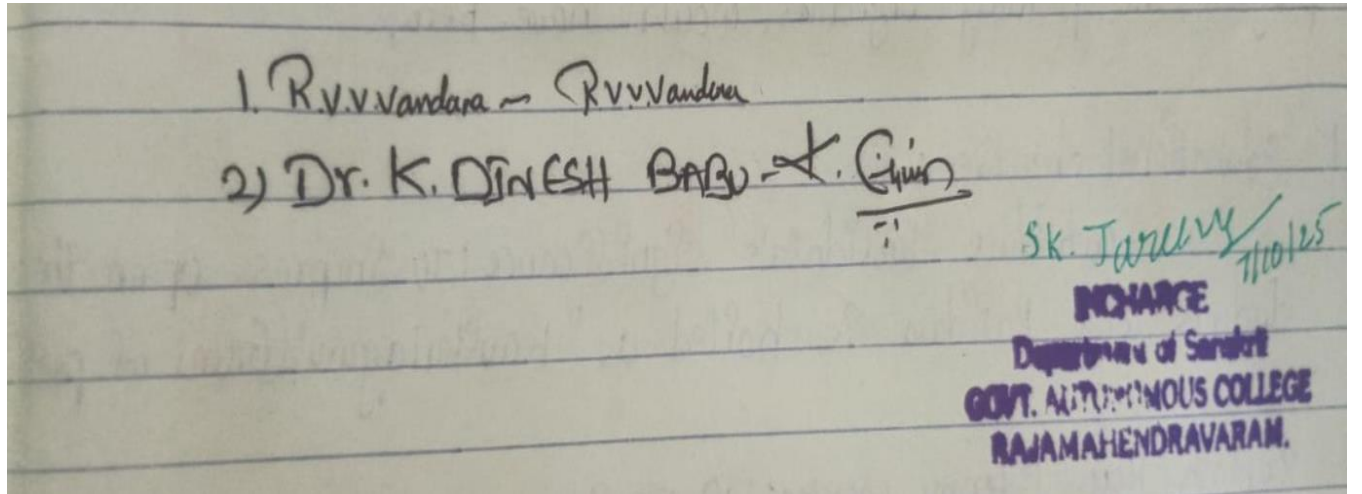 1. R.V.V.Vandana - RVVVandana
2) Dr. K. DINESH BABU - K.
SK.
7/10/25
INCHARGE
Department of Sanskrit
GOVT. AUTONOMOUS COLLEGE
RAJAMAHENDRAVARAM.